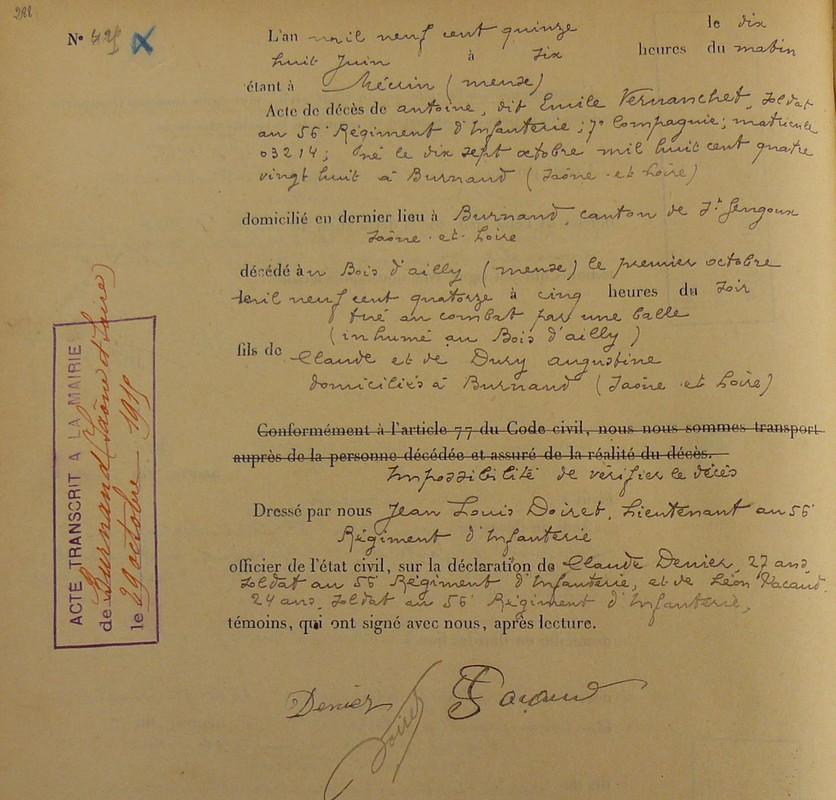 288
N° 425 X
L'an mil neuf cent quinze le dix
huit Juin à dix heures du matin
étant à Mécrin (meuse)
Acte de décès de antoine, dit Emile Vernanchet, Soldat
au 56e Régiment d'Infanterie; 7e Compagnie; matricule
03214; né le dix sept octobre mil huit cent quatre
vingt huit à Burnand (Saône et Loire)
domicilié en dernier lieu à Burnand, canton de St Gengoux
Saône et Loire
décédé au Bois d'ailly (meuse) le premier octobre
mil neuf cent quatorze à cinq heures du Soir
tué au combat par une balle
(inhumé au Bois d'ailly)
fils de Claude et de Dury augustine
domiciliés à Burnand (Saône et Loire)
Conformément à l'article 77 du Code civil, nous nous sommes transport
auprès de la personne décédée et assuré de la réalité du décès.
Impossibilité de vérifier le décès
Dressé par nous Jean Louis Doiret, Lieutenant au 56e
Régiment d'Infanterie
officier de l'état civil, sur la déclaration de Claude Denier, 27 ans,
Soldat au 56e Régiment d'Infanterie, et de Léon Pacaud
24 ans, Soldat au 56e Régiment d'Infanterie,
témoins, qui ont signé avec nous, après lecture.
Denier Doiret Pacaud
ACTE TRANSCRIT A LA MAIRIE
de Burnand (Saône et Loire)
le 29 octobre 1915